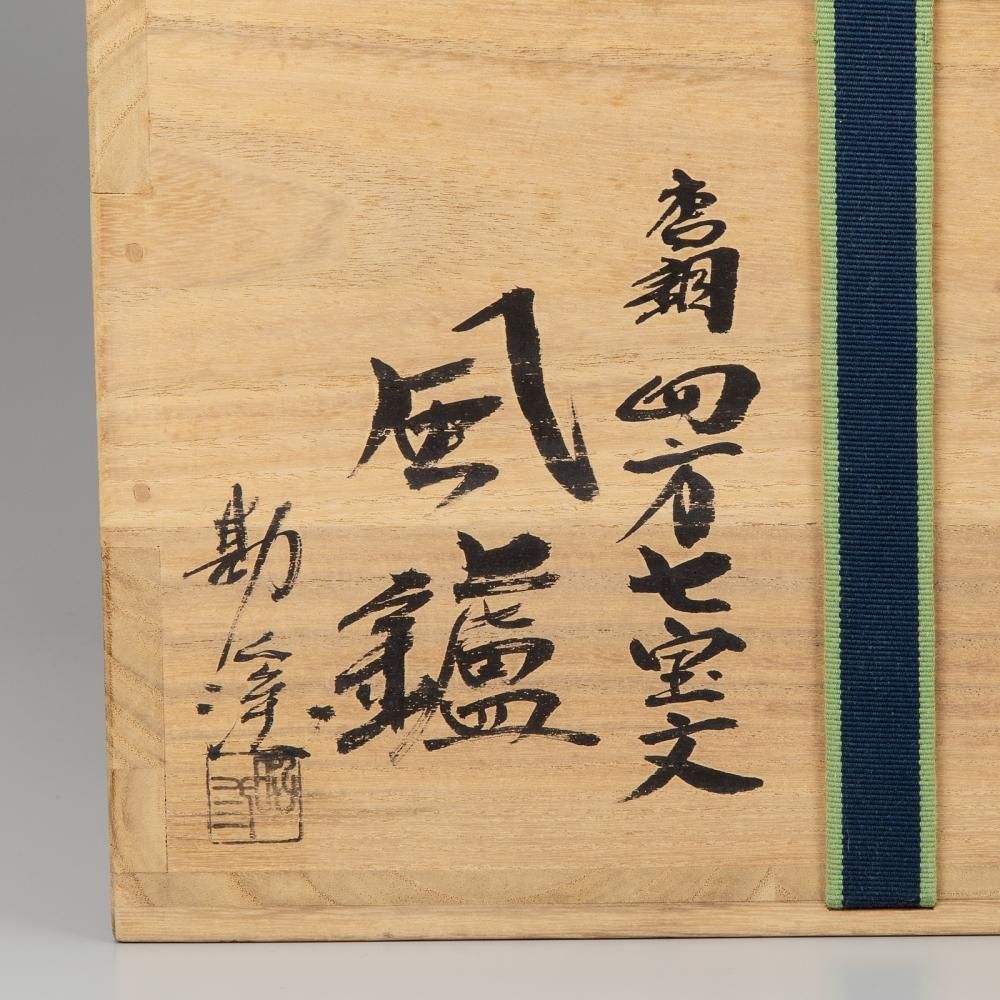 唐銅四方七宝文
風鑪
勘